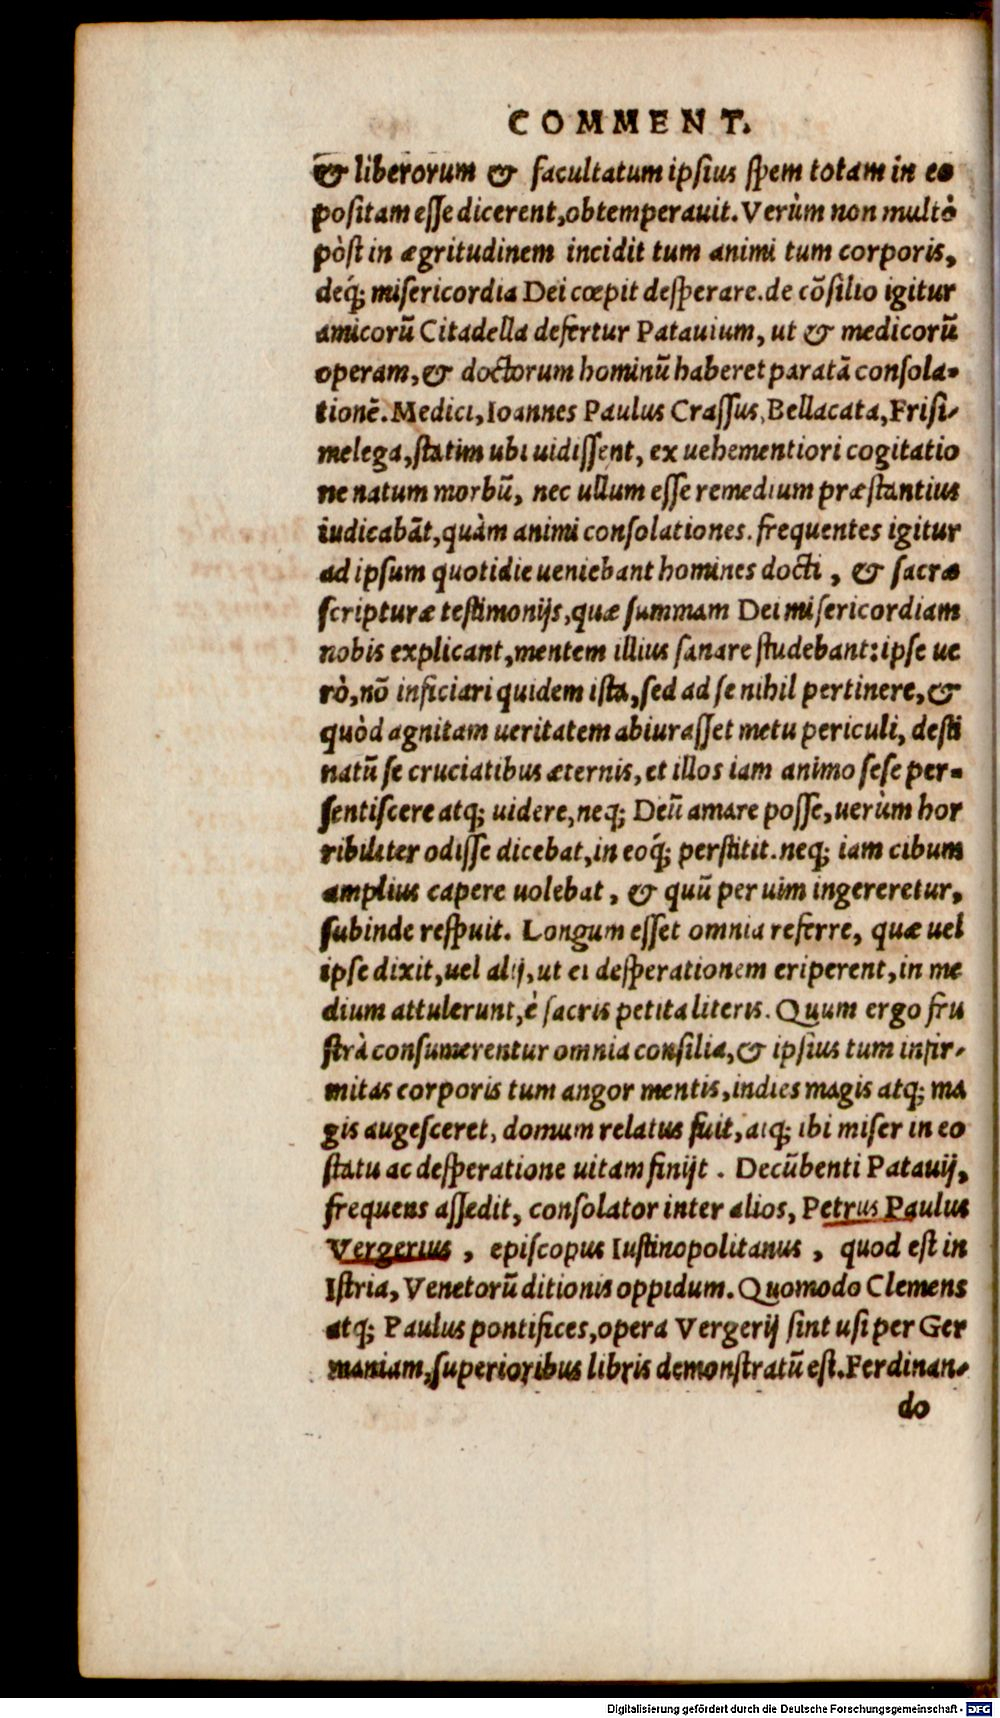 COMMENT.
& liberorum & facultatum ipsius spem totam in eo
positam esse dicerent, obtemperauit. Verùm non multò
pòst in ægritudinem incidit tum animi tum corporis,
deq́; misericordia Dei cœpit desperare. de cõsilio igitur
amicorũ Citadella defertur Patauium, ut & medicorũ
operam, & doctorum hominũ haberet paratã consola-
tionẽ. Medici, Ioannes Paulus Crassus, Bellacata, Frisi-
melega, statim ubi uidissent, ex uehementiori cogitatio
ne natum morbũ, nec ullum esse remedium præstantius
iudicabãt, quàm animi consolationes. frequentes igitur
ad ipsum quotidie ueniebant homines docti, & sacræ
scripturæ testimonijs, quæ summam Dei misericordiam
nobis explicant, mentem illius sanare studebant: ipse ue
rò, nõ inficiari quidem ista, sed ad se nihil pertinere, &
quòd agnitam ueritatem abiurasset metu periculi, desti
natũ se cruciatibus æternis, et illos iam animo sese per-
sentiscere atq; uidere, neq; Deũ amare posse, uerùm hor
ribiliter odisse dicebat, in eoq́; perstitit. neq; iam cibum
amplius capere uolebat, & quũ per uim ingereretur,
subinde respuit. Longum esset omnia referre, quæ uel
ipse dixit, uel alij, ut ei desperationem eriperent, in me
dium attulerunt, è sacris petita literis. Quum ergo fru
strà consumerentur omnia consilia, & ipsius tum infir-
mitas corporis tum angor mentis, indies magis atq; ma
gis augesceret, domum relatus fuit, atq; ibi miser in eo
statu ac desperatione uitam finijt. Decũbenti Patauij,
frequens assedit, consolator inter alios, Petrus Paulus
Vergerius, episcopus Iustinopolitanus, quod est in
Istria, Venetorũ ditionis oppidum. Quomodo Clemens
atq; Paulus pontifices, opera Vergerij sint usi per Ger
maniam, superioribus libris demonstratũ est. Ferdinan-
do
Digitalisierung gefördert durch die Deutsche Forschungsgemeinschaft - DFG